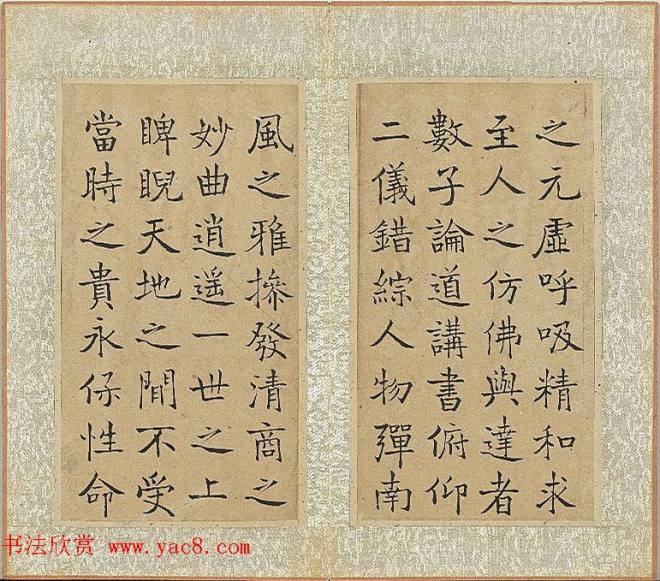 之元虛呼吸精和求
至人之仿佛與達者
數子論道講書俯仰
二儀錯綜人物彈南
風之雅摻發清商之
妙曲逍遥一世之上
睥睨天地之間不受
當時之貴永保性命
书法欣赏 www.yac8.com